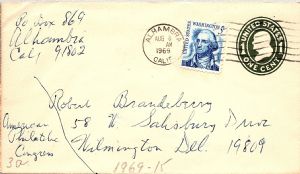 P.o. Box 869
Alhambra
Cal, 91802
ALHAMBRA
AUG
AM
1969
CALIF.
WASHINGTON
UNITED STATES
ONE CENT
Robert Brandeberry
58 W. Salisbury Drive
Wilmington Del. 19809
American
Philatelic
Congress
30
1969-15